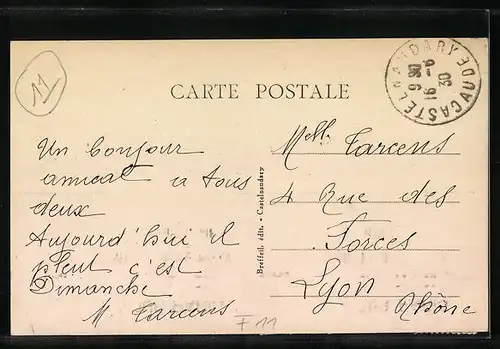 11
CARTE POSTALE
CASTELNAUDARY AUDE
9 30
16 - 6
30
Un bonjour
amical a tous
deux
Aujourd'hui il
pleut c'est
Dimanche
M Tarcens
F 11
Breffeil, édit. - Castelnaudary
Melle Tarcens
4 Rue des
Forces
Lyon
Rhône